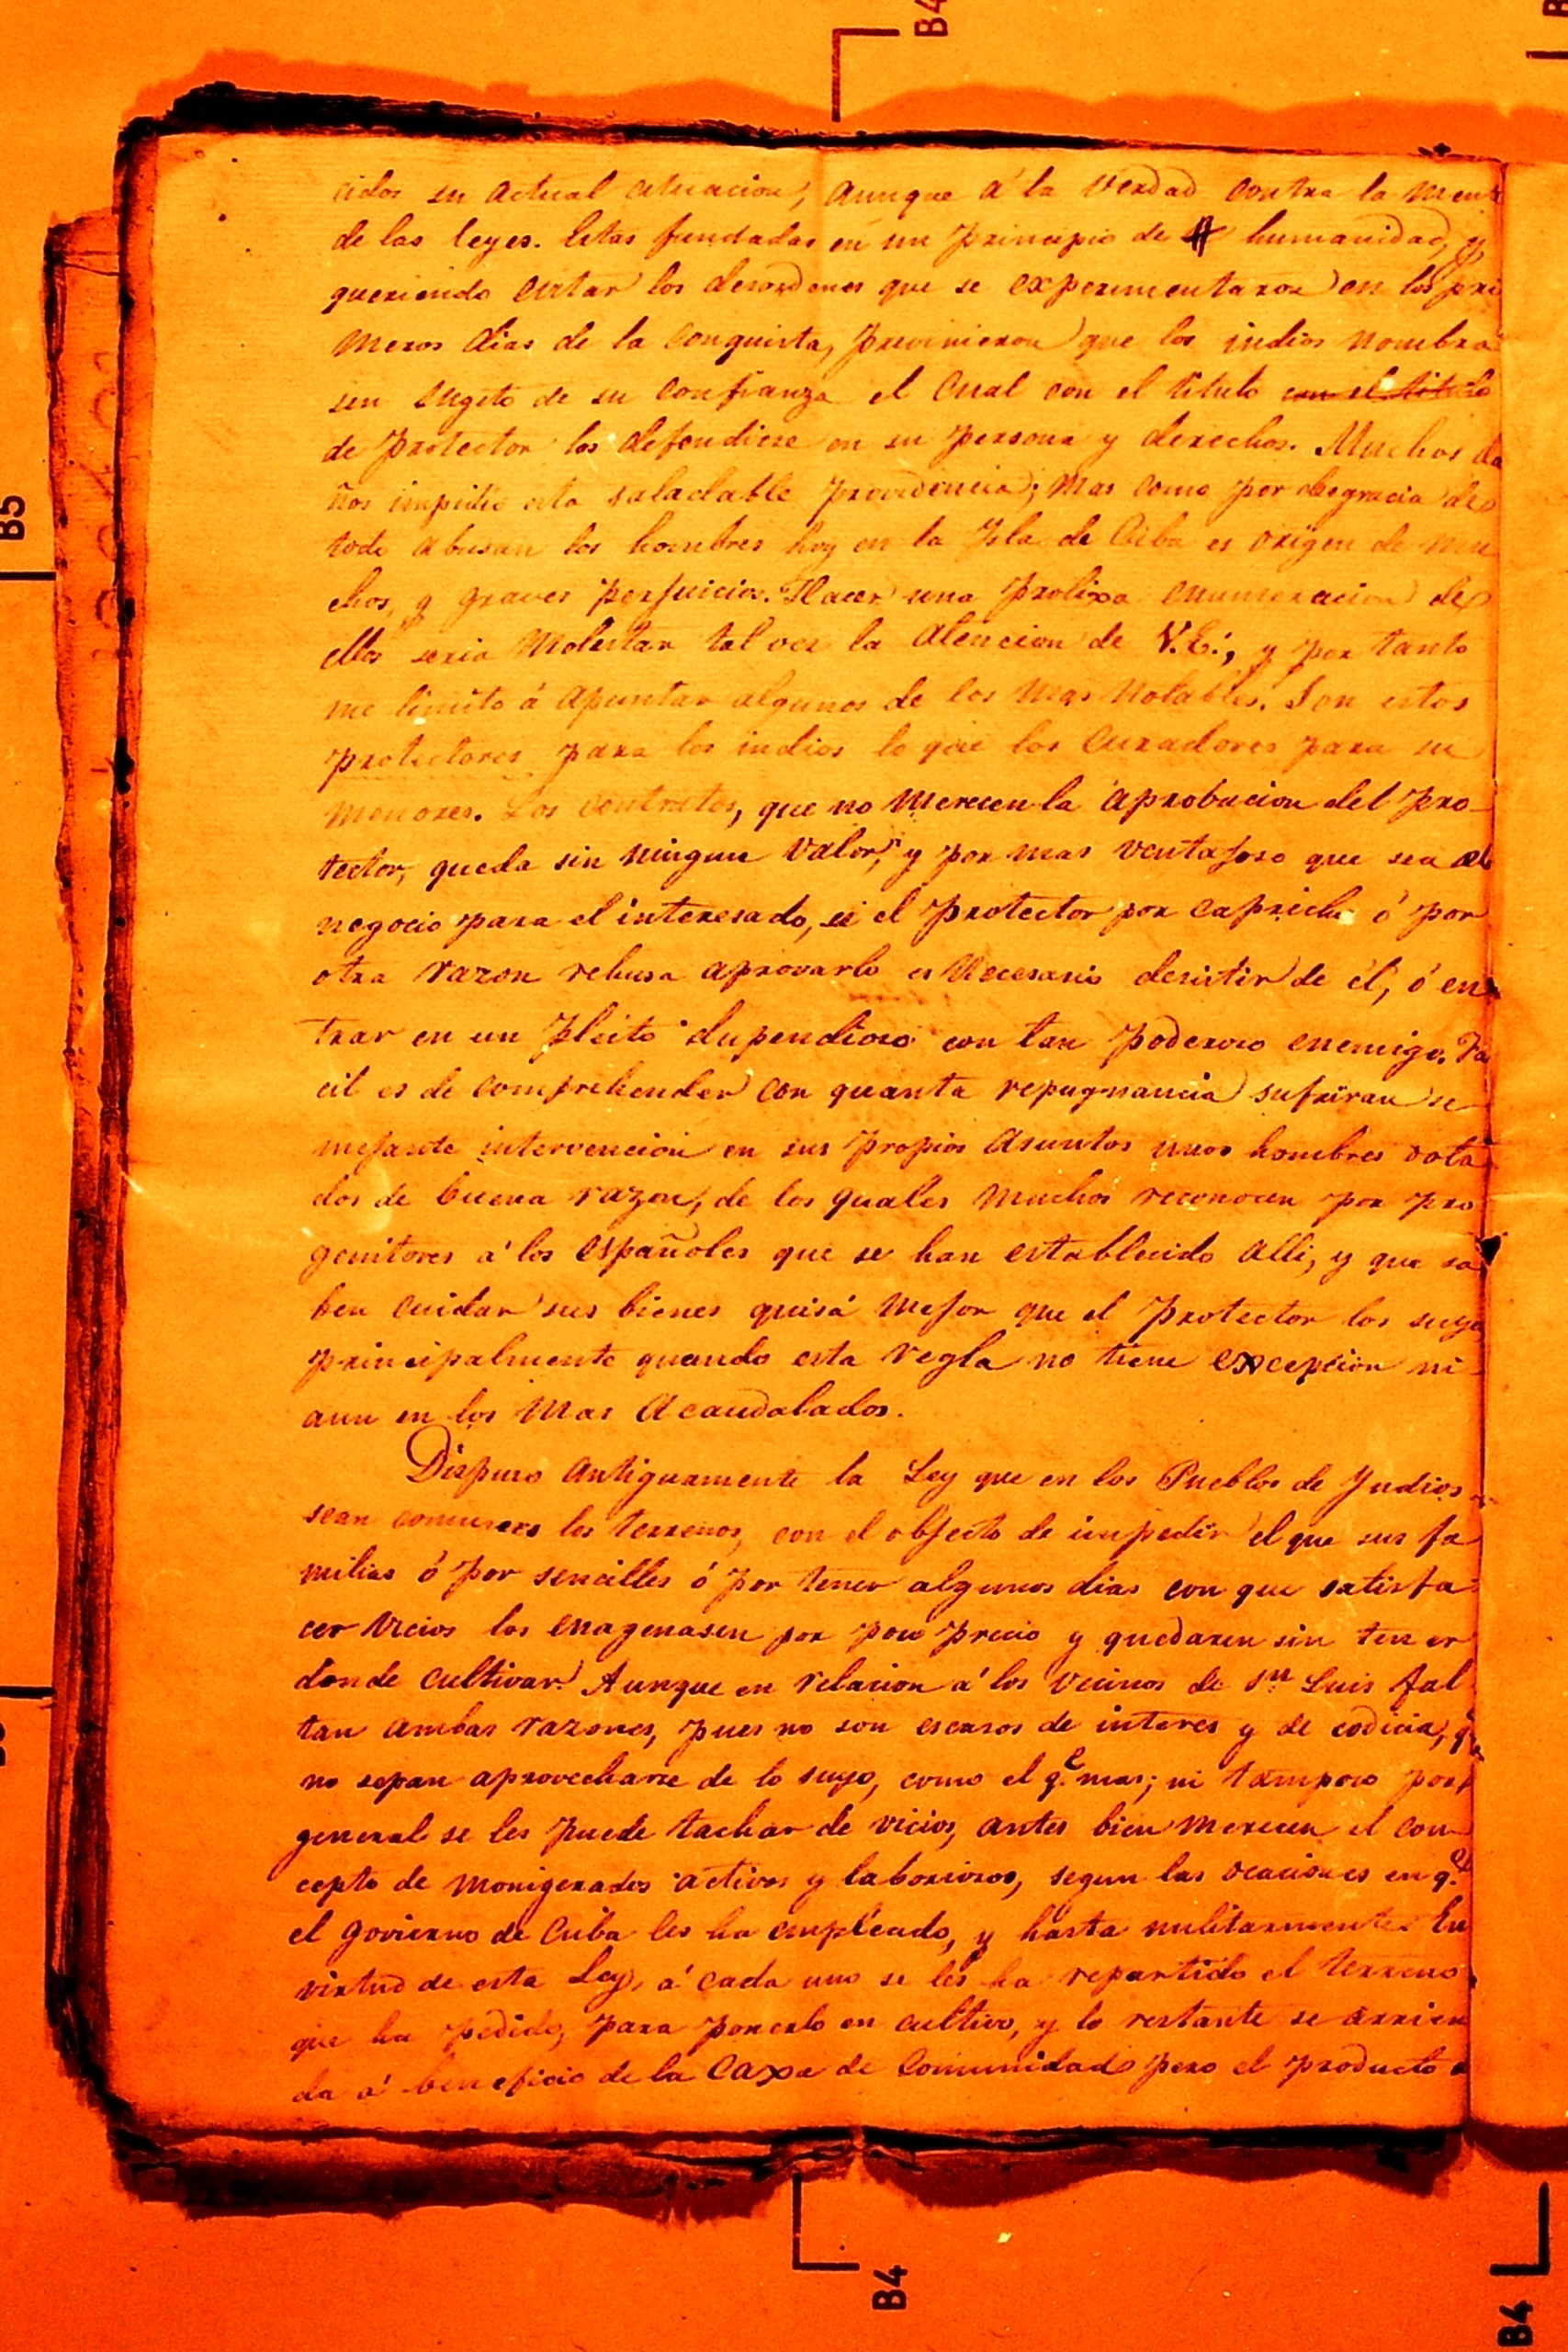 B4
B5
cidos su actual cituacion, aunque á la verdad contra la ment
de las leyes. Estas fundadas en un principio de humanidad, y
queriendo evitar los desordenes que se experimentaron en los pri
meros dias de la conquista, previnieron que los indios nombra
sen sugeto de su confianza el cual con el titulo con el titulo
de Protector los defendiese en su persona y derechos. Muchos da
ños impidio esta saludable providencia; mas como por desgracia de
todo abusan los hombres hoy en la Isla de Cuba es origen de mu
chos, y graves perjuicios. Hacer una prolixa enumeracion de
ellos seria molestar tal vez la atencion de V.E., y por tanto
me limito á apuntar algunos de los mas notables. Son estos
protectores para los indios lo que los curadores para su
menores. Los contratos, que no merecen la aprobacion del Pro-
tector, queda sin ningun valor, y por mas ventajoso que sea el
negocio para el interesado, si el Protector por capricho ó por
otra razon rehusa aprovarlo es necesario desistir de él, ó en
trar en un pleito dispendioso con tan poderoso enemigo. Fa
cil es de comprehender con quanta repugnancia sufriran se
mejante intervencion en sus propios asuntos unos hombres dota
dos de buena razon, de los quales muchos reconocen por pro
genitores á los españoles que se han establecido alli, y que sa
ben cuidar sus bienes quisá mejor que el Protector los suyo
principalmente quando esta regla no tiene excepcion ni
aun en los mas acaudalados.
Dispuso antiguamente la Ley que en los Pueblos de Yndios
sean comunes los terrenos, con el objecto de impedir el que sus fa
milias ó por sencilles ó por tener algunos dias con que satisfa
cer vicios los enagenasen por poco precio y quedaren sin tener
donde cultivar. Aunque en relacion á los vecinos de Sn. Luis fal
tan ambas razones, pues no son escasos de interes y de codicia, q
no sepan aprovecharse de lo suyo, como el q.e mas; ni tampoco por
general se les puede tachar de vicios, antes bien merecen el con
cepto de morigerados activos y laboriosos, segun las ocasiones en q.e
el govierno de Cuba les ha empleado, y hasta militarmente. En
virtud de esta Ley, á cada uno se les ha repartido el terreno
que ha pedido, para ponerlo en cultivo, y lo restante se arrien
da á beneficio de la Caxa de Comunidad pero el producto
B4
B4